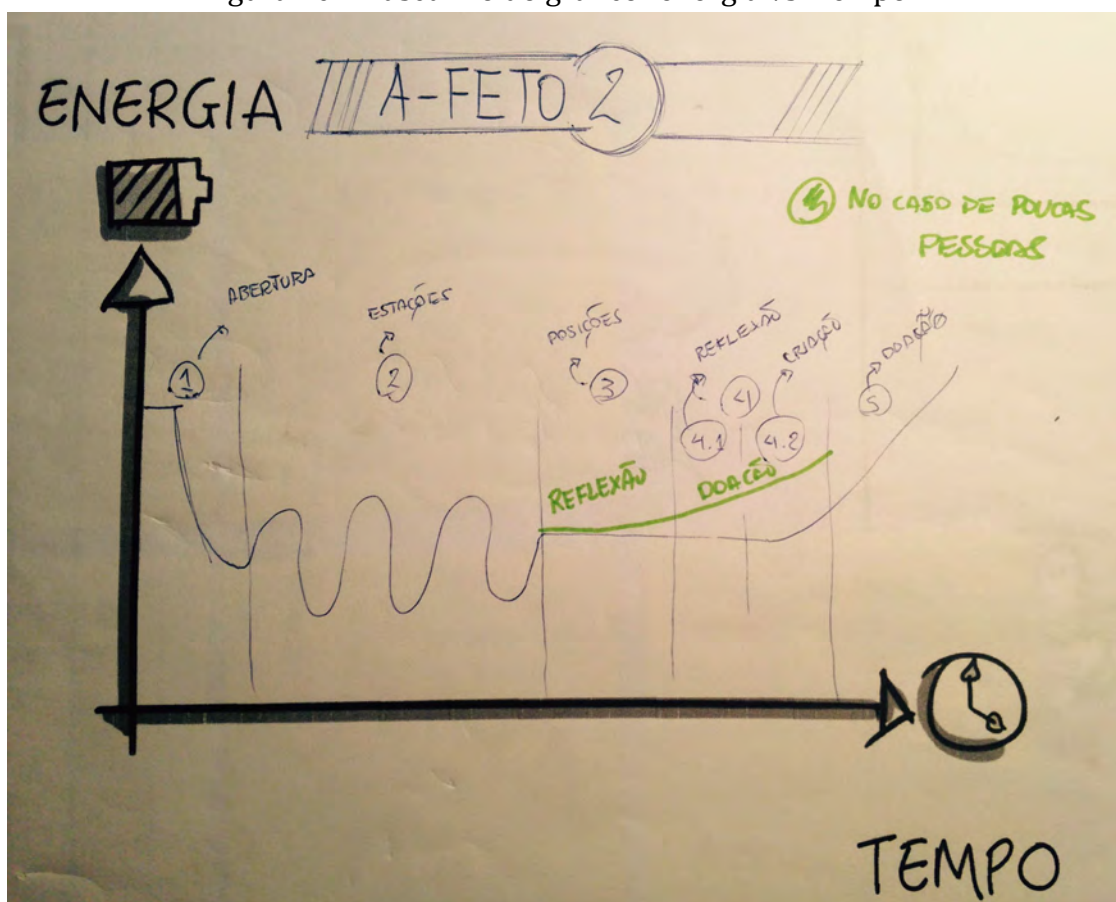 ENERGIA A-FETO 2
NO CASO DE POUCAS
PESSOAS
ABERTURA
ESTAÇÕES
POSIÇÕES
REFLEXÃO
CRIAÇÃO
DOAÇÃO
1
2
3
4
4.1
4.2
5
REFLEXÃO
DOAÇÃO
TEMPO